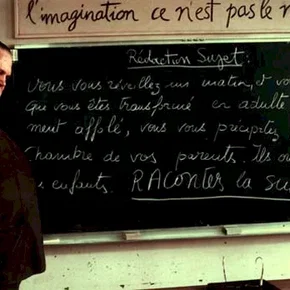 l'imagination ce n'est pas le
Rédaction Sujet :
Vous vous réveillez un matin, et vo
que vous êtes transformé en adulte
ment affolé, vous vous précipitez
chambre de vos parents. Ils o
enfants. RAConter la su